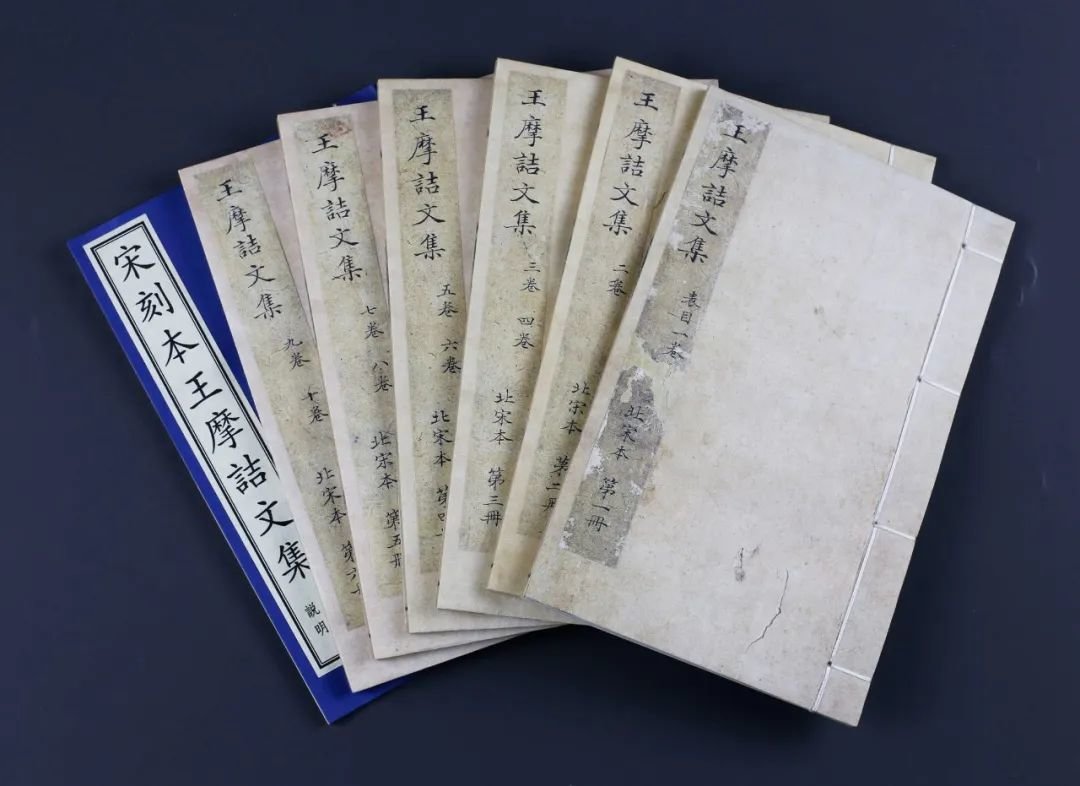 王摩詰文集 表目一卷 北宋本 第一冊
王摩詰文集 二卷 北宋本 第二冊
王摩詰文集 三卷 四卷 北宋本 第三冊
王摩詰文集 五卷 六卷 北宋本 第四
王摩詰文集 七卷 八卷 北宋本 第五冊
王摩詰文集 九卷 十卷 北宋本 第六
宋刻本王摩詰文集 説明